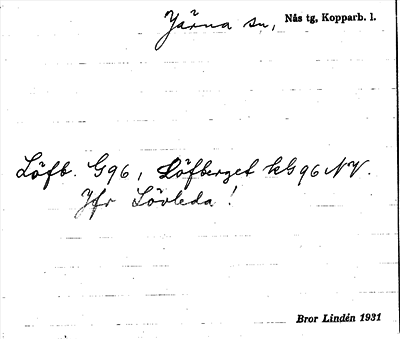 Järna sn, Nås tg, Kopparb. l.
Löfb. G96, Löfberget kG96NV.
Jfr Lövleda!
Bror Lindén 1931